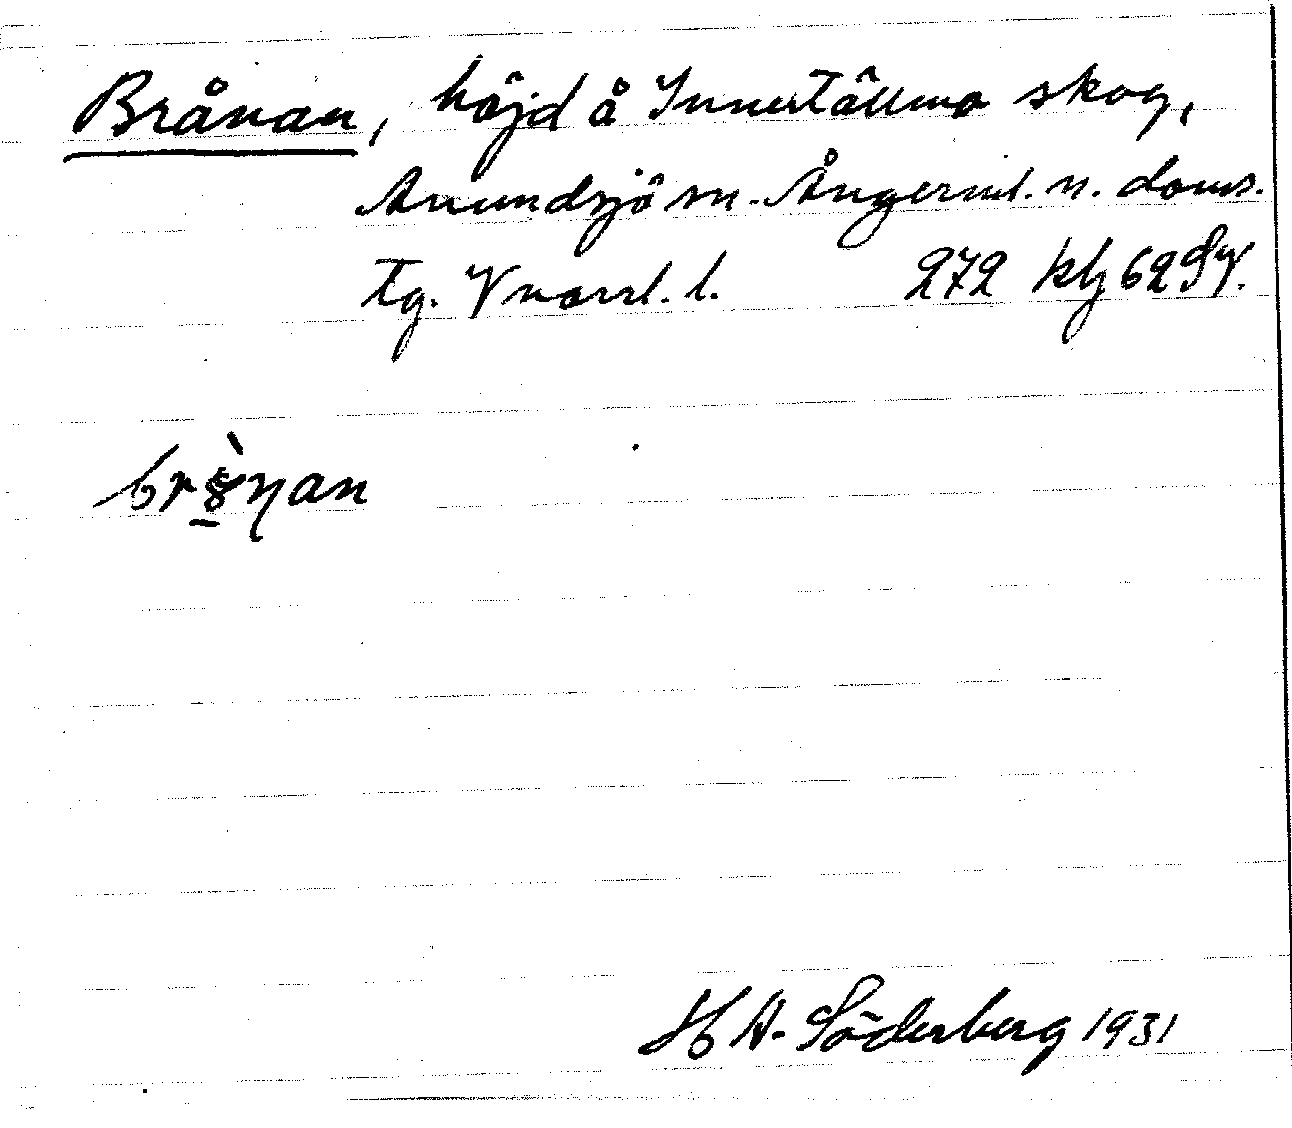 Brånan, höjd å Innertällmo skog,
Anundsjö sn. Ångerml. n. doms.
tg. Vnorrl. l. 272 klj 62 SV.
HA. Söderberg 1931